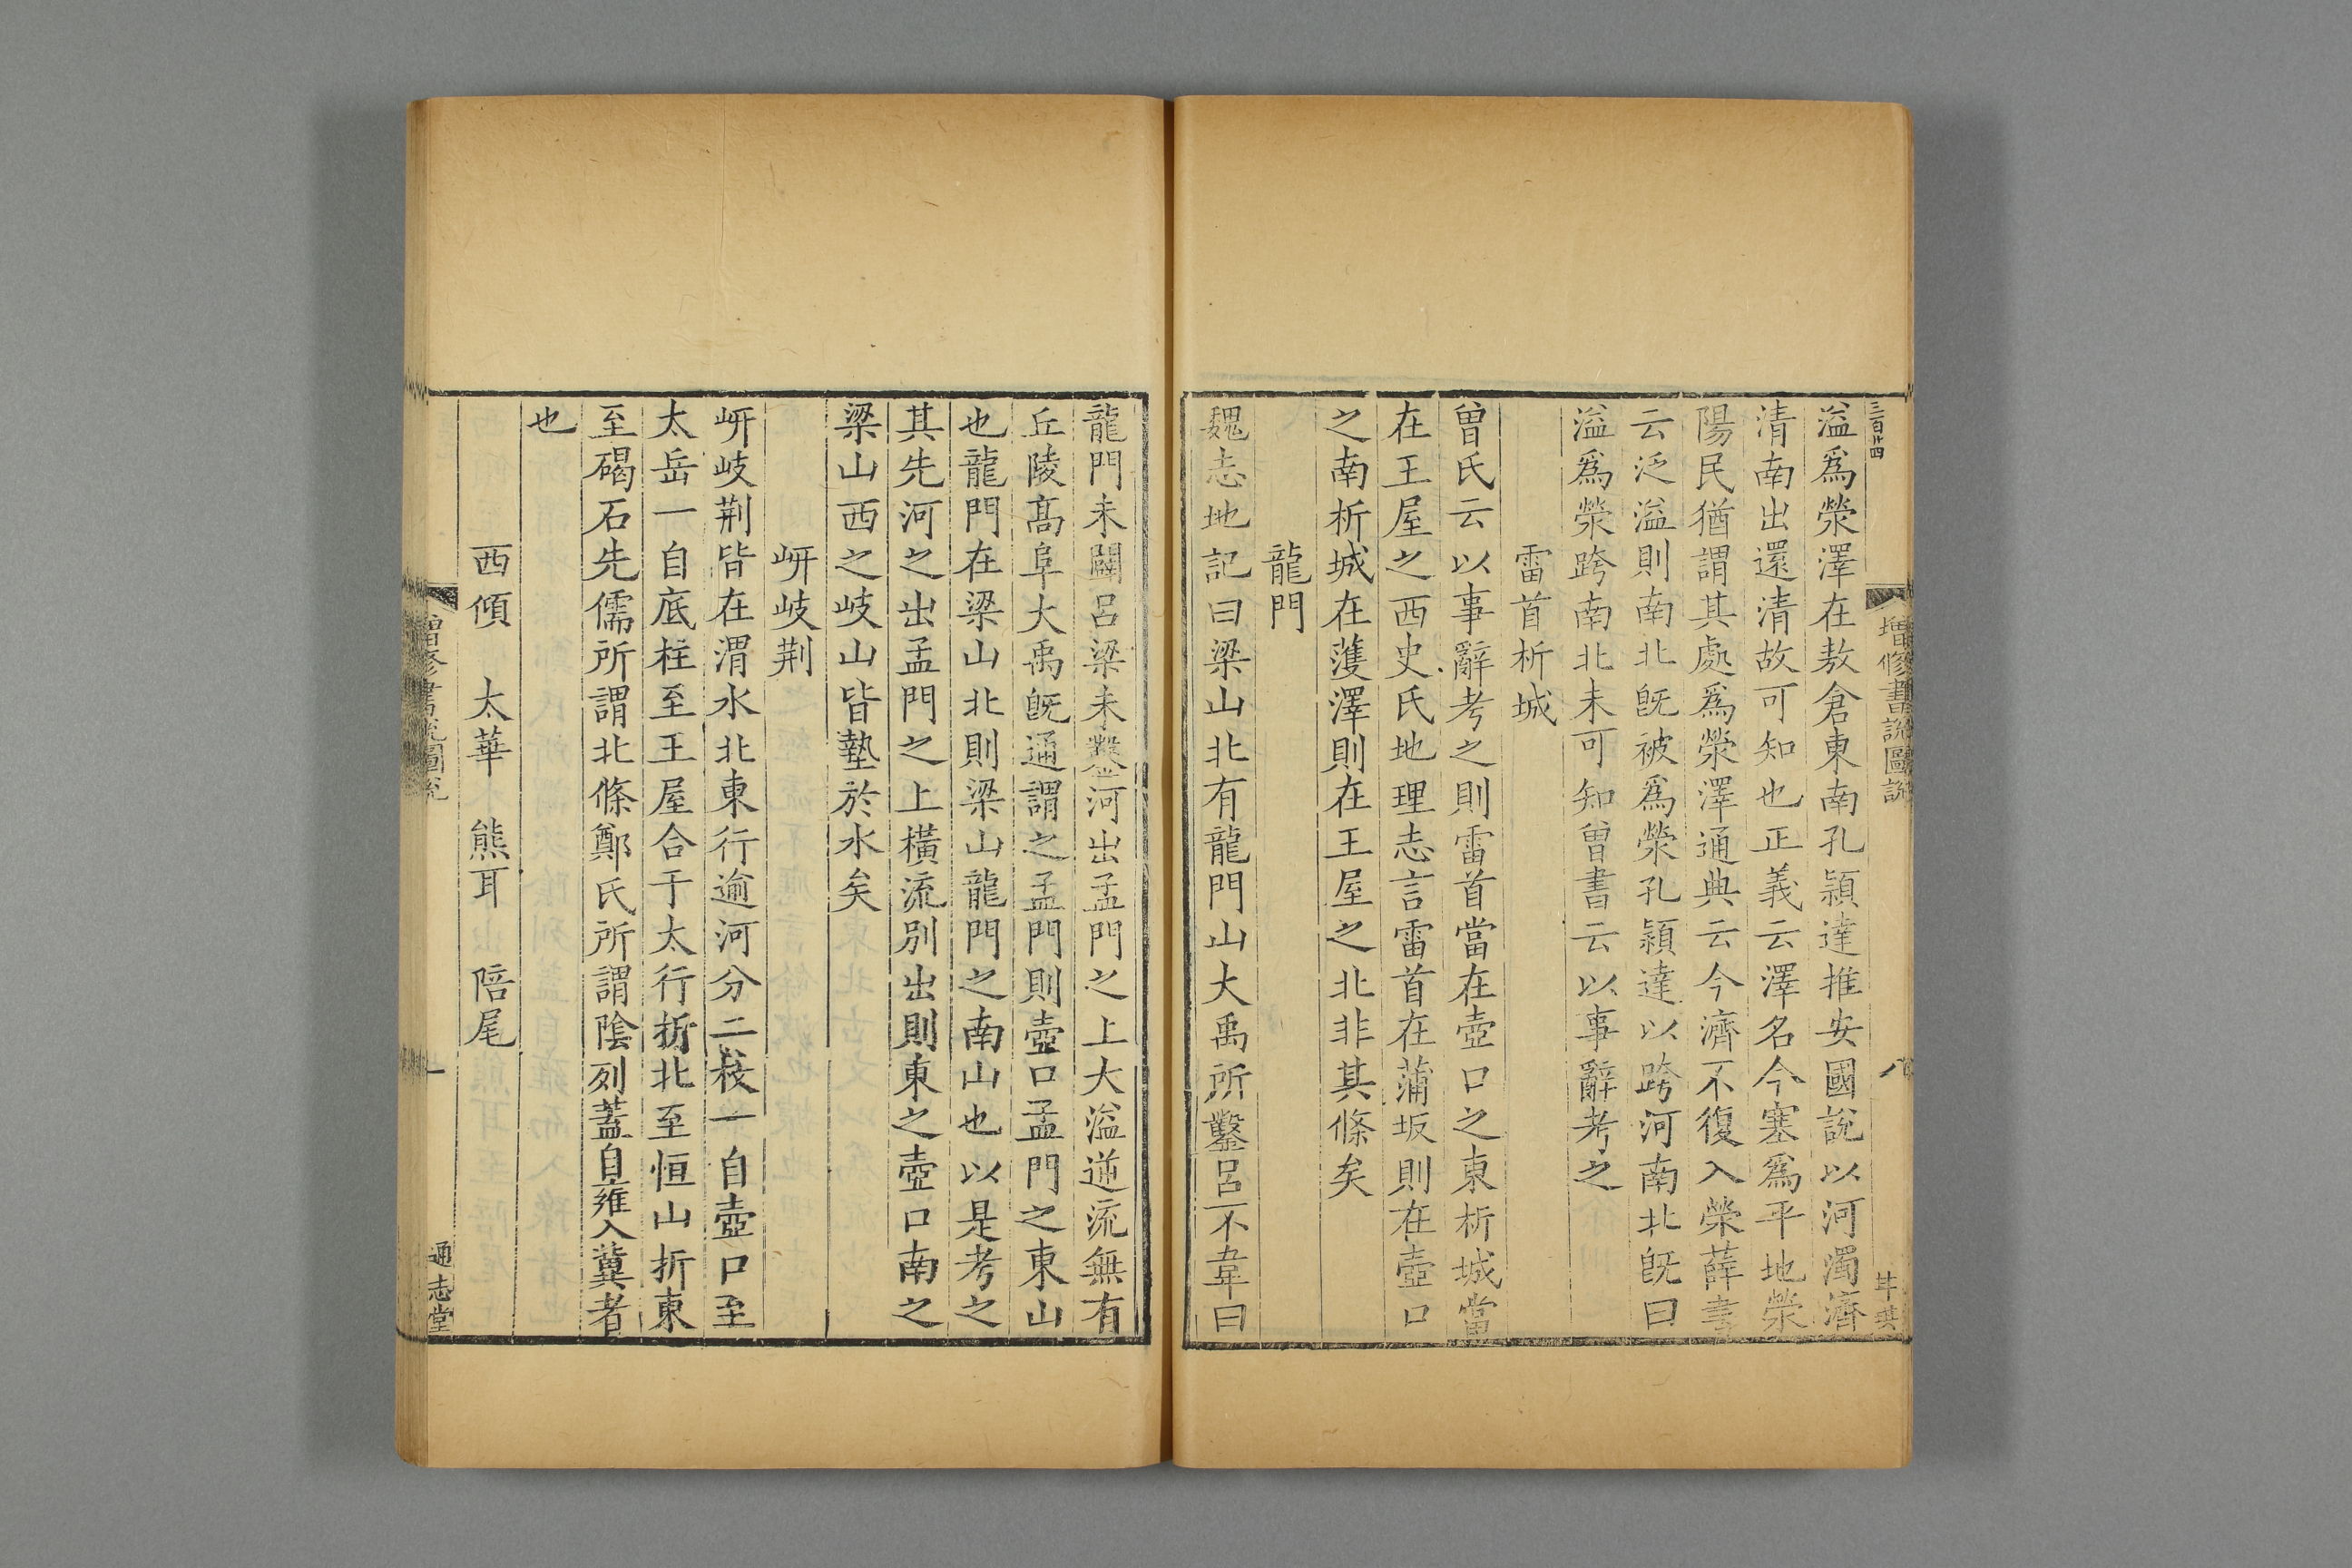 三百卄四
增修書說圖說
溢爲滎澤在敖倉東南孔穎達推安國說以河濁濟
清南出還清故可知也正義云澤名今塞爲平地滎
陽民猶謂其處爲滎澤通典云今濟不復入滎薛書
云泛溢則南北旣被爲滎孔穎達以跨河南北旣曰
溢爲滎跨南北未可知曾書云以事辭考之
雷首析城
曾氏云以事辭考之則雷首當在壺口之東析城當
在王屋之西史氏地理志言雷首在蒲坂則在壺口
之南析城在蒦澤則在王屋之北非其條矣
龍門
魏志地記曰梁山北有龍門山大禹所鑿呂不韋曰
龍門未闢呂梁未鑿河出孟門之上大溢逆流無有
丘陵高阜大禹旣通謂之孟門則壺口孟門之東山
也龍門在梁山北則梁山龍門之南山也以是考之
其先河之出孟門之上橫流別出則東之壺口南之
梁山西之岐山皆墊於水矣
岍岐荆
岍岐荆皆在渭水北東行逾河分二枝一自壺口至
太岳一自底柱至王屋合于太行折北至恒山折東
至碣石先儒所謂北條鄭氏所謂陰列蓋自雍入冀者
也
西傾 太華 熊耳 陪尾
增修書說圖說
通志堂